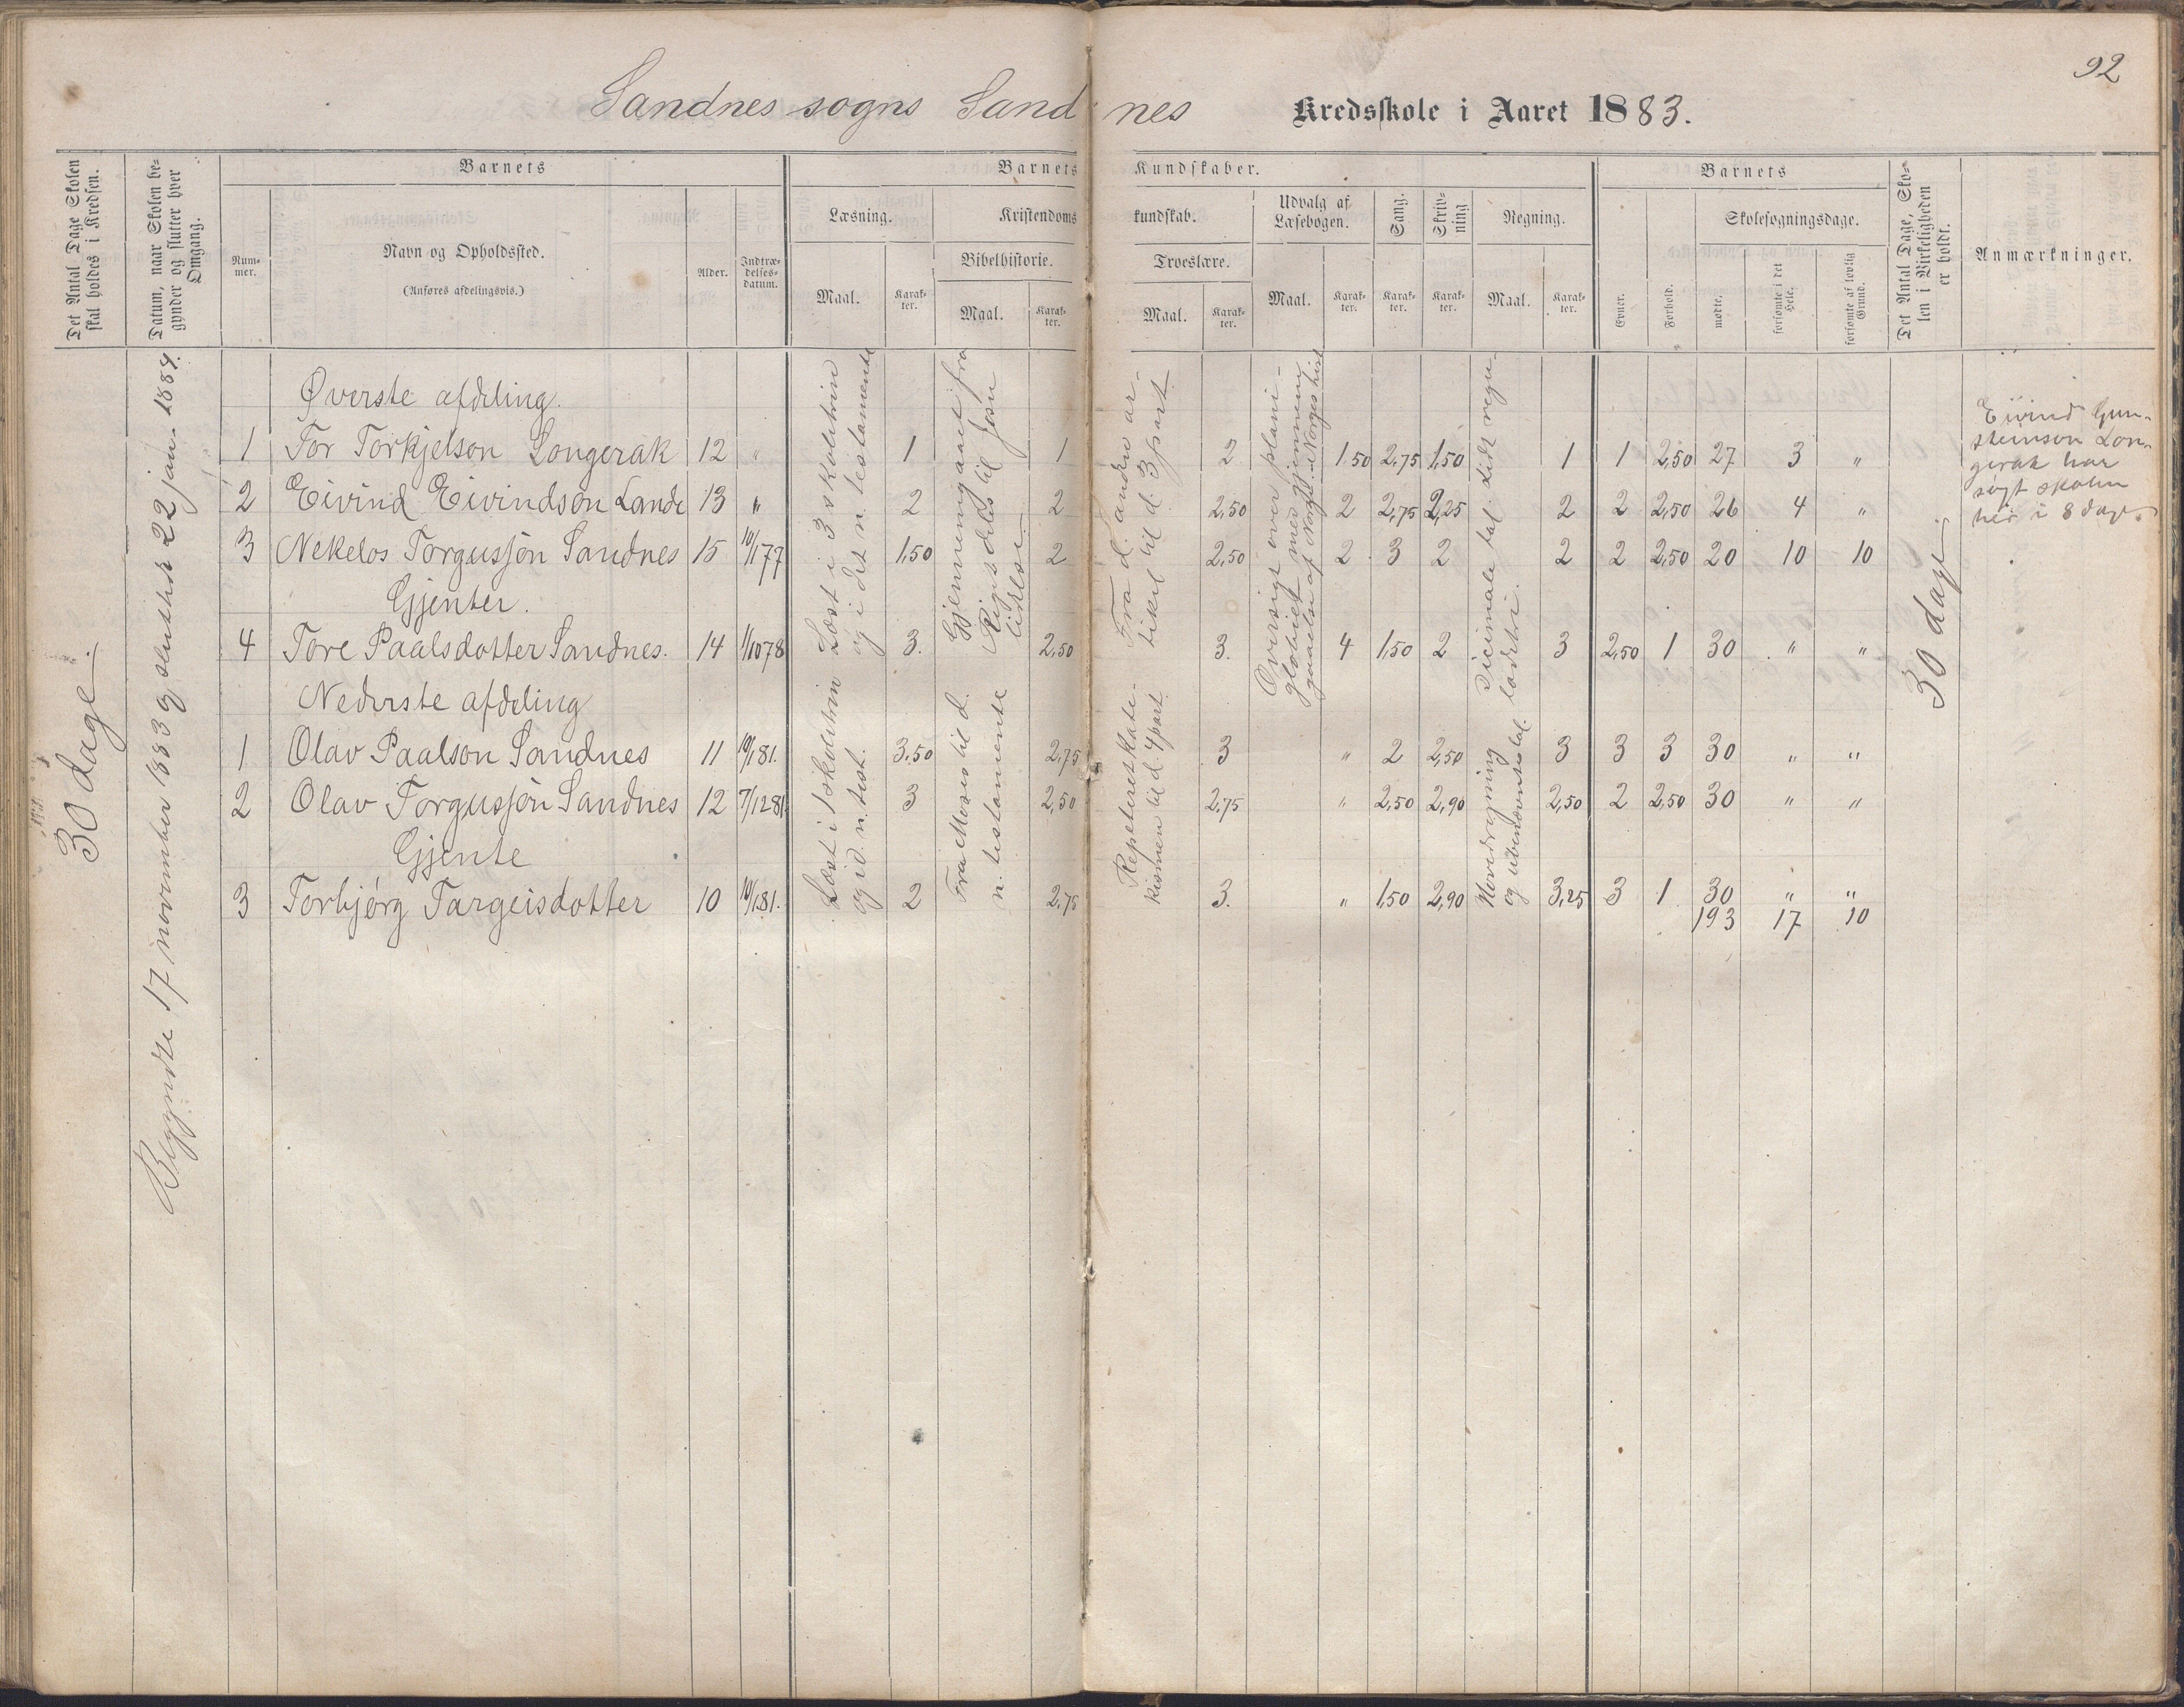 92
Sandnes sogns Sandnes Kredsskole i Aaret 1883.
Det Antal Dage Skolen skal holdes i Kredsen.
Datum, naar Skolen begynder og slutter hver Omgang.
Barnets
Nummer.
Navn og Opholdssted.
(Anføres afdelingsvis.)
Alder.
Indtrædelsesdatum.
Barnets Kundskaber.
Læsning.
Maal.
Karakter.
Kristendomskundskab.
Bibelhistorie.
Maal.
Karakter.
Troeslære.
Maal.
Karakter.
Udvalg af Læsebogen.
Maal.
Karakter.
Sang.
Karakter.
Skrivning
Karakter.
Regning.
Maal.
Karakter.
Barnets
Evner.
Forhold.
Skolesøgningsdage.
mødte.
forsømte i det Hele.
forsømte af lovlig Grund.
Det Antal Dage, Skolen i Virkeligheden er holdt.
Anmærkninger.
30 dage.
Begyndte 17 november 1883 og sluttede 22 jan. 1884.
Øverste afdeling.
1 Tor Torkjelson Longerak 12 " 1 1 2 1.50 2,75 1,50 1 1 2,50 27 3 "
2 Eivind Eivindson Lande 13 " 2 2 2,50 2 2,75 2,25 2 2 2,50 26 4 "
3 Nekelos Torgusjøn Sandnes 15 10/1 77 1,50 2 2,50 2 3 2 2 2 2,50 20 10 10
Gjenter.
4 Tore Paalsdotter Sandnes. 14 1/10 78 3. 2,50 3. 4 1,50 2 3 2,50 1 30 " "
Nederste afdeling
1 Olav Paalson Sandnes 11 10/1 81. 3,50 2,75 3 " 2 2,50 3 3 3 30 " "
2 Olav Torgusjøn Sandnes 12 7/12 81. 3 2,50 2,75 " 2,50 2,90 2,50 2 2,50 30 " "
Gjente
3 Torbjørg Targeisdotter 10 10/1 81. 2 2,75 3. " 1,50 2,90 3,25 3 1 30 " "
193 17 10
Læst i 3 skoletrin
og i det n. testamente
Gjennemgaaet fra
Rigets deles til Jesu
lidelse.
Fra d. anden ar-
tikel til d. 3 part
Oversigt over plani-
globiet med gjennem-
gaaelse af Norge. Norges hist
Decimale tal. Lidt regu-
ladetri.
Læst i 1 skoletrin
og i d. n. test.
Fra Moses til d.
n. testamente
Repetereskate-
kismen til d. 4 part
Hovedregning
og ubenævnte tal.
30 dage
Eivind Gun-
steinson Lon-
gerak har
søgt skolen
her i 8 dage.